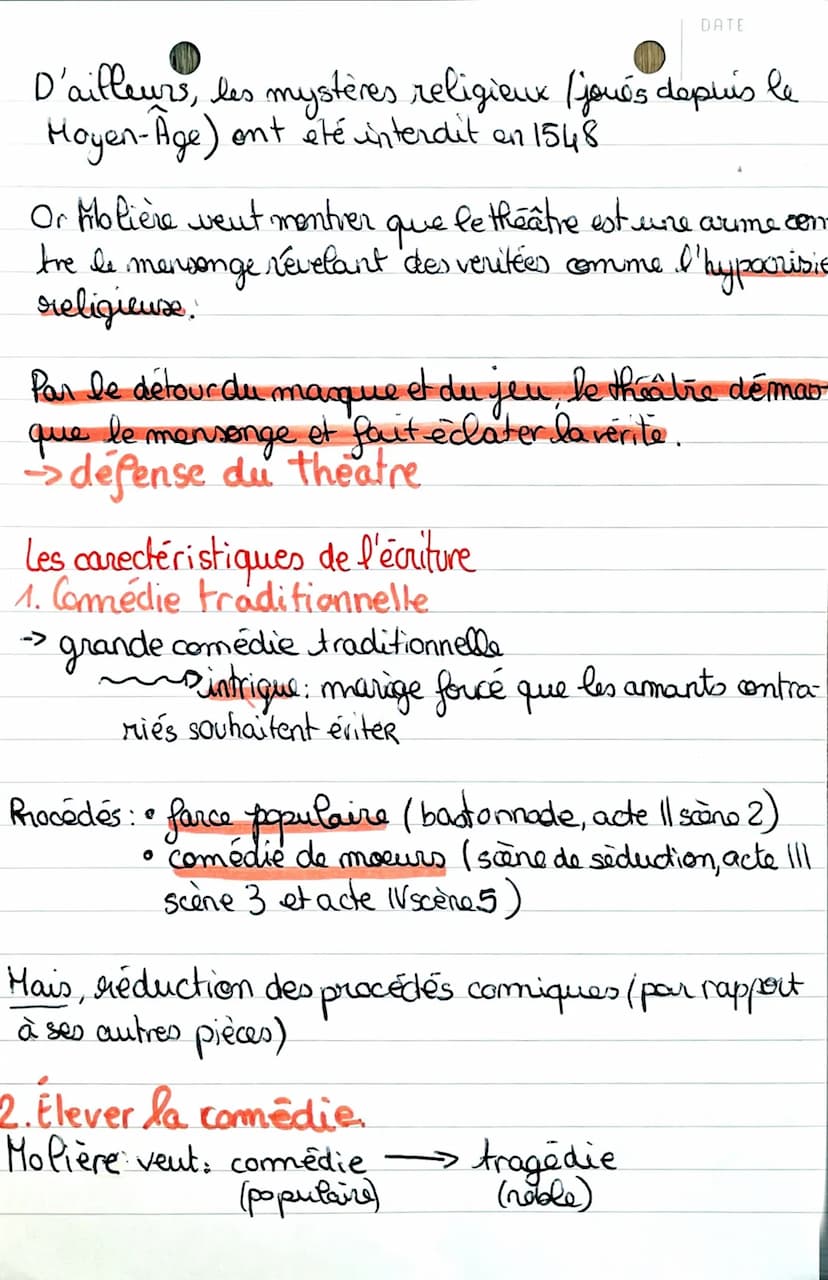 DATE
D'ailleurs, les mystères religieux (joués depuis le
Moyen-Âge) ont été interdit en 1548
Or Molière veut montrer que le théâtre est une arme con
tre le mensonge révélant des veritées comme l'hypocrisie
religieuse.
Par le détour du masque et du jeu, le théâtre démas-
que le mensonge et fait éclater la vérité.
-> défense du théâtre
Les carectéristiques de l'écriture
1. Comédie traditionnelle
-> grande comédie traditionnelle
intrigue : marige forcé que les amants contra-
riés souhaitent éviter
Procédés : • farce populaire (bastonnade, acte II scène 2)
• comédie de moeurs (scène de séduction, acte III
scène 3 et acte IV scène 5)
Mais, réduction des procédés comiques (par rapport
à ses autres pièces)
2. Élever la comédie.
Molière veut : comédie -> tragédie
(populaire) (noble)